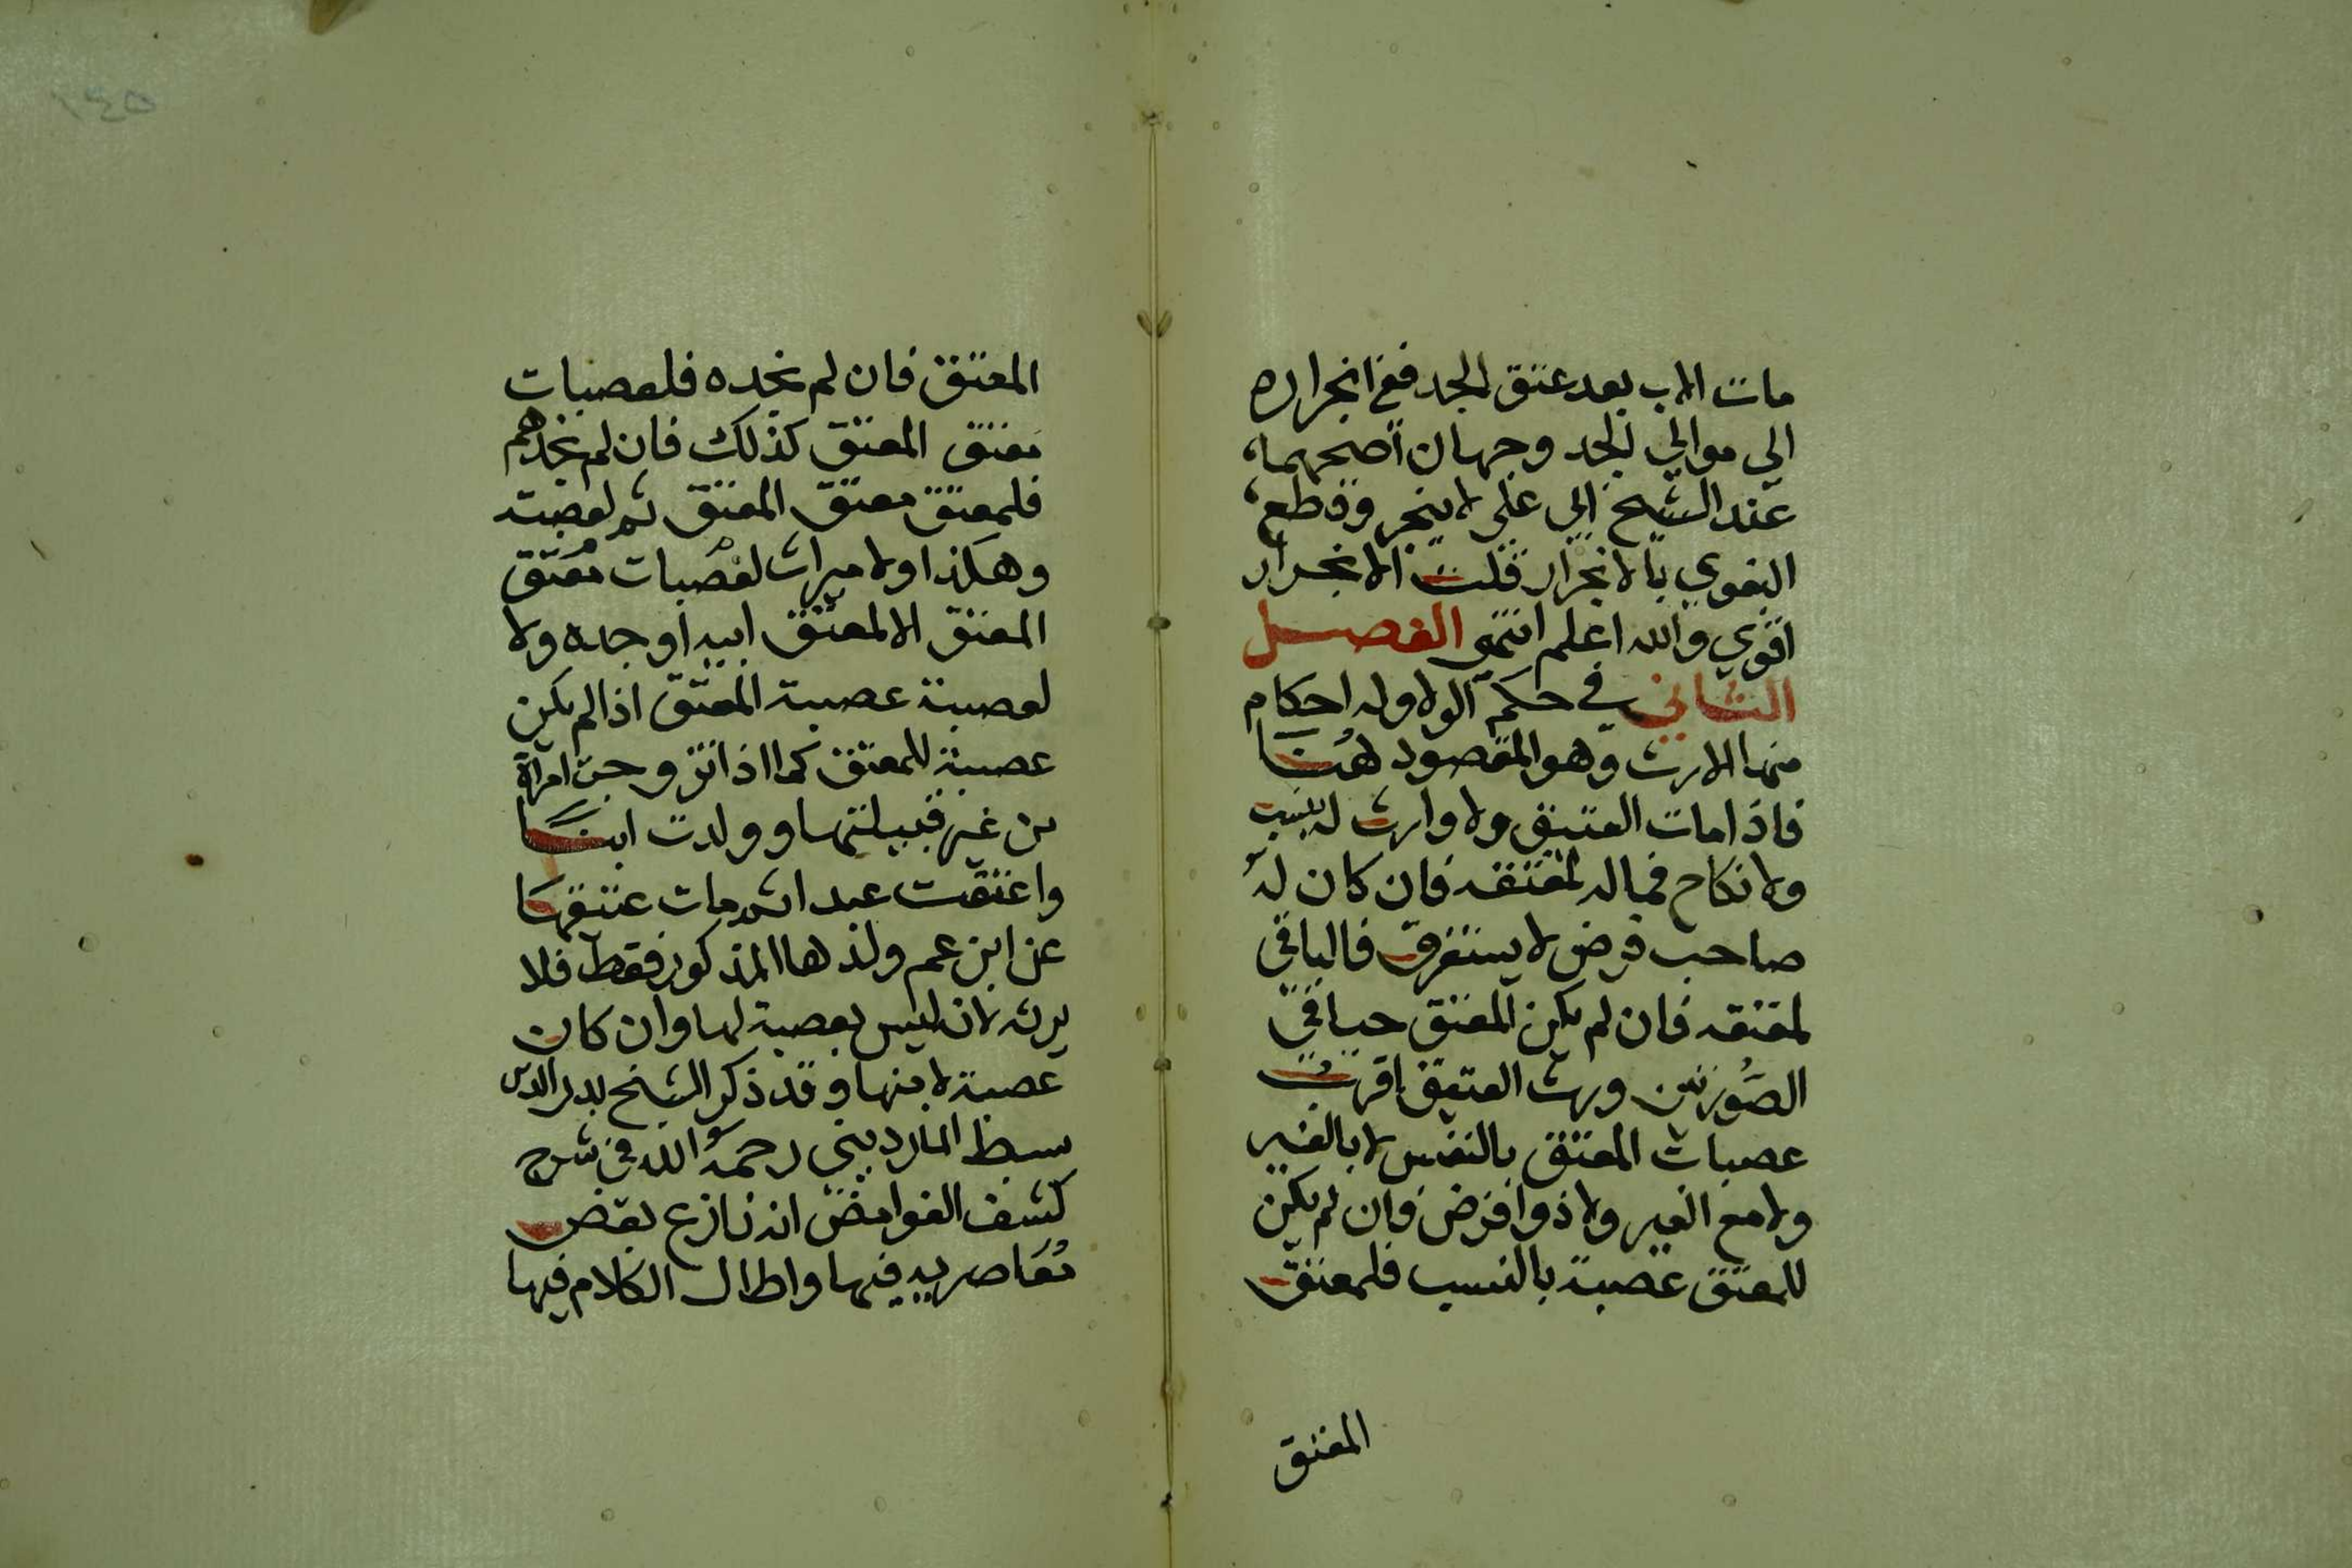 مات الاب بعد عتق الجد ففي انجراره
الي موالي الجد وجهان اصحهما
عند الشيخ ابي علي لا ينجر وقطع
البغوي بالانجرار قلت الانجرار
اقوي والله اعلم انتهي الفصل
الثاني في حكم الولا وله احكام
منها الارث وهو المقصود هنا
فاذا مات العتيق ولا وارث له بنسب
ولا نكاح فماله لمعتقه فان كان له
صاحب فرض لا يستغرق فالباقي
لمعتقه فان لم يكن المعتق حيا في
الصورتين ورث العتيق اقرب
عصبات المعتق بالنفس لا بالغير
ولا مع الغير ولا ذوا فرض فان لم يكن
للمعتق عصبة بالنسب فلمعتق
المعتق
المعتق فان لم نجده فلعصبات
معتق المعتق كذلك فان لم نجدهم
فلمعتق معتق المعتق ثم لعصبته
وهكذا ولا ميراث لعصبات معتق
المعتق الا لمعتق ابيه او جده ولا
لعصبة عصبة المعتق اذا لم يكن
عصبة للمعتق كما اذا تزوجت امراة
من غير قبيلتها وولدت ابنا
واعتقت عبدا ثم مات عتيقها
عن ابن عم ولدها المذكور فقط فلا
يرثه لانه ليس بعصبة لها وان كان
عصبة لابنها وقد ذكر الشيخ بدر الدين
سبط المارديني رحمه الله في شرح
كشف الغوامض انه نازع بعض
معاصريه فيها واطال الكلام فيها